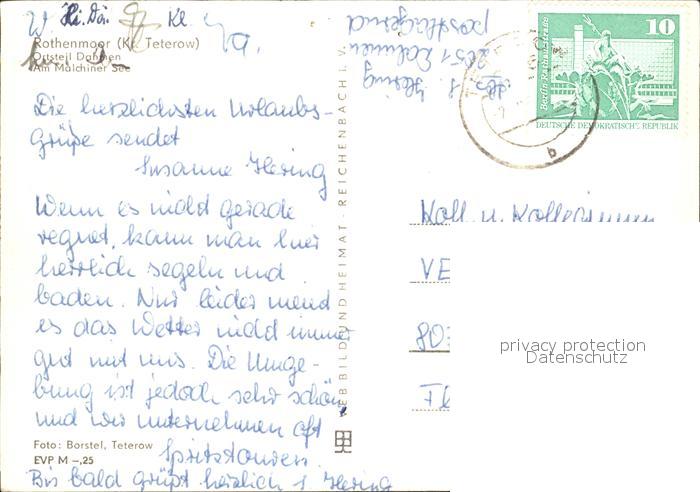 Rothenmoor (Kr. Teterow)
Ortsteil Dahmen
Am Malchiner See
Die herzlichsten Urlaubs-
grüße sendet
Susanne Hering
Wenn es nicht gerade
regnet, kann man hier
herrlich segeln und
baden. Nur leider meint
es das Wetter nicht immer
gut mit uns. Die Umge-
bung ist jedoch sehr schön
und wir unternehmen oft
Spritztouren.
Bis bald grüßt herzlich S. Hering
Foto: Borstel, Teterow
EVP M –,25
VEB BILD UND HEIMAT · REICHENBACH I. V.
Abs. S. Hering
2051 Dahmen
postlagernd
10
Berlin Rathausstraße
DEUTSCHE DEMOKRATISCHE REPUBLIK
b
Koll. u. Kolleginnen
VE
80
privacy protection
Datenschutz